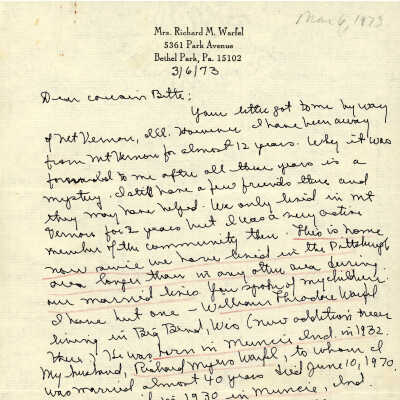 Mar 6, 1973
Mrs. Richard M. Warfel
5361 Park Avenue
Bethel Park, Pa. 15102
3/6/73
Dear cousin Bitts:
Your letter got to me by way
of Mt Vernon, Ill. However I have been away
from Mt Vernon for almost 12 years. Why it was
forwarded to me after all these years is a
mystery. I still have a few friends there and
they may have helped. We only lived in Mt
Vernon for 2 years but I was a very active
member of the community then. This is home
now since we have lived in the Pittsburgh
area longer than in any other area during
our married lives. You spoke of my children.
I have but one - William Theodore Warfel
living in Big Bend, Wis (new addition near
there). He was born in Muncie Ind. in 1932.
My husband, Richard Myers Warfel, to whom I
was married almost 40 years died June 10, 1970.
in 1930 in Muncie, Ind.